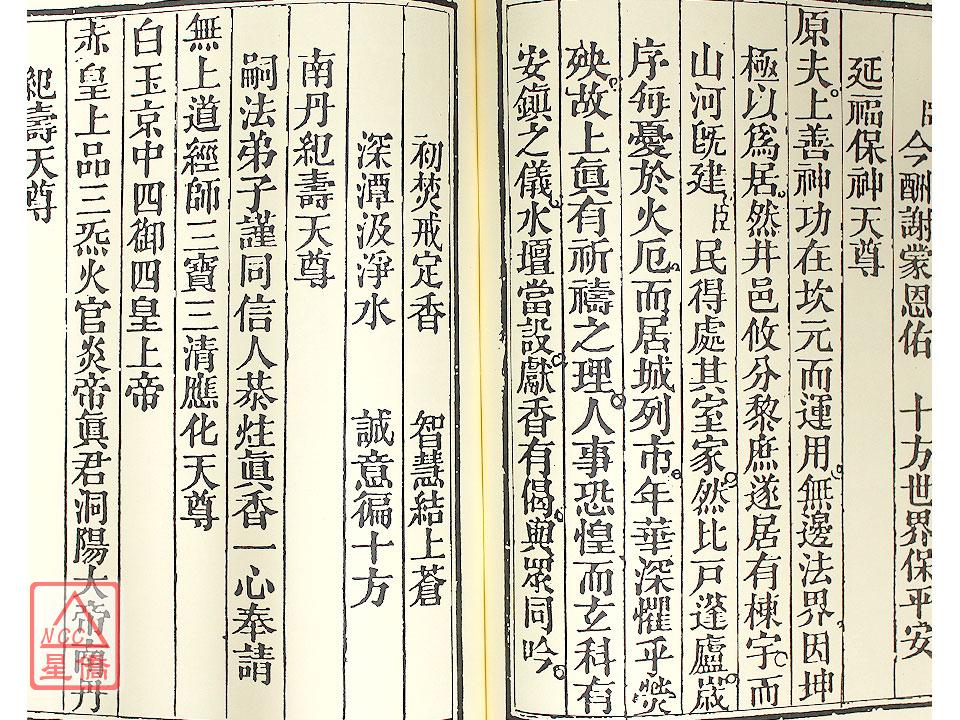 今酬謝蒙恩佑　十方世界保平安
延福保神天尊
原夫。上善神功在坎元而運用。無邊法界因坤
極以為居。然井邑攸分黎庶遂居有棟宇。而
山河既建臣民得處其室家。然比戶蓬廬。歲
序每憂於火厄。而居城列市。年華深懼乎熒
殃。故上眞有祈禱之理。人事恐惶而玄科有
安鎮之儀。水壇當設。獻香有偈。與眾同吟。
初焚戒定香　智慧結上蒼
深潭汲淨水　誠意徧十方
南丹紀壽天尊
嗣法弟子謹同信人恭炷眞香一心奉請
無上道經師三寶三清應化天尊
白玉京中四御四皇上帝
赤皇上品三炁火官炎帝眞君洞陽大帝南丹
紀壽天尊
NCC
星僑